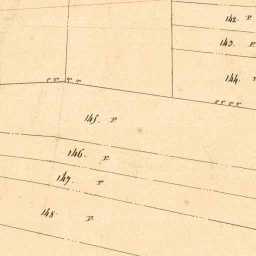 142. v
143. v
144. v
145. v
146. v
147. v
148. v